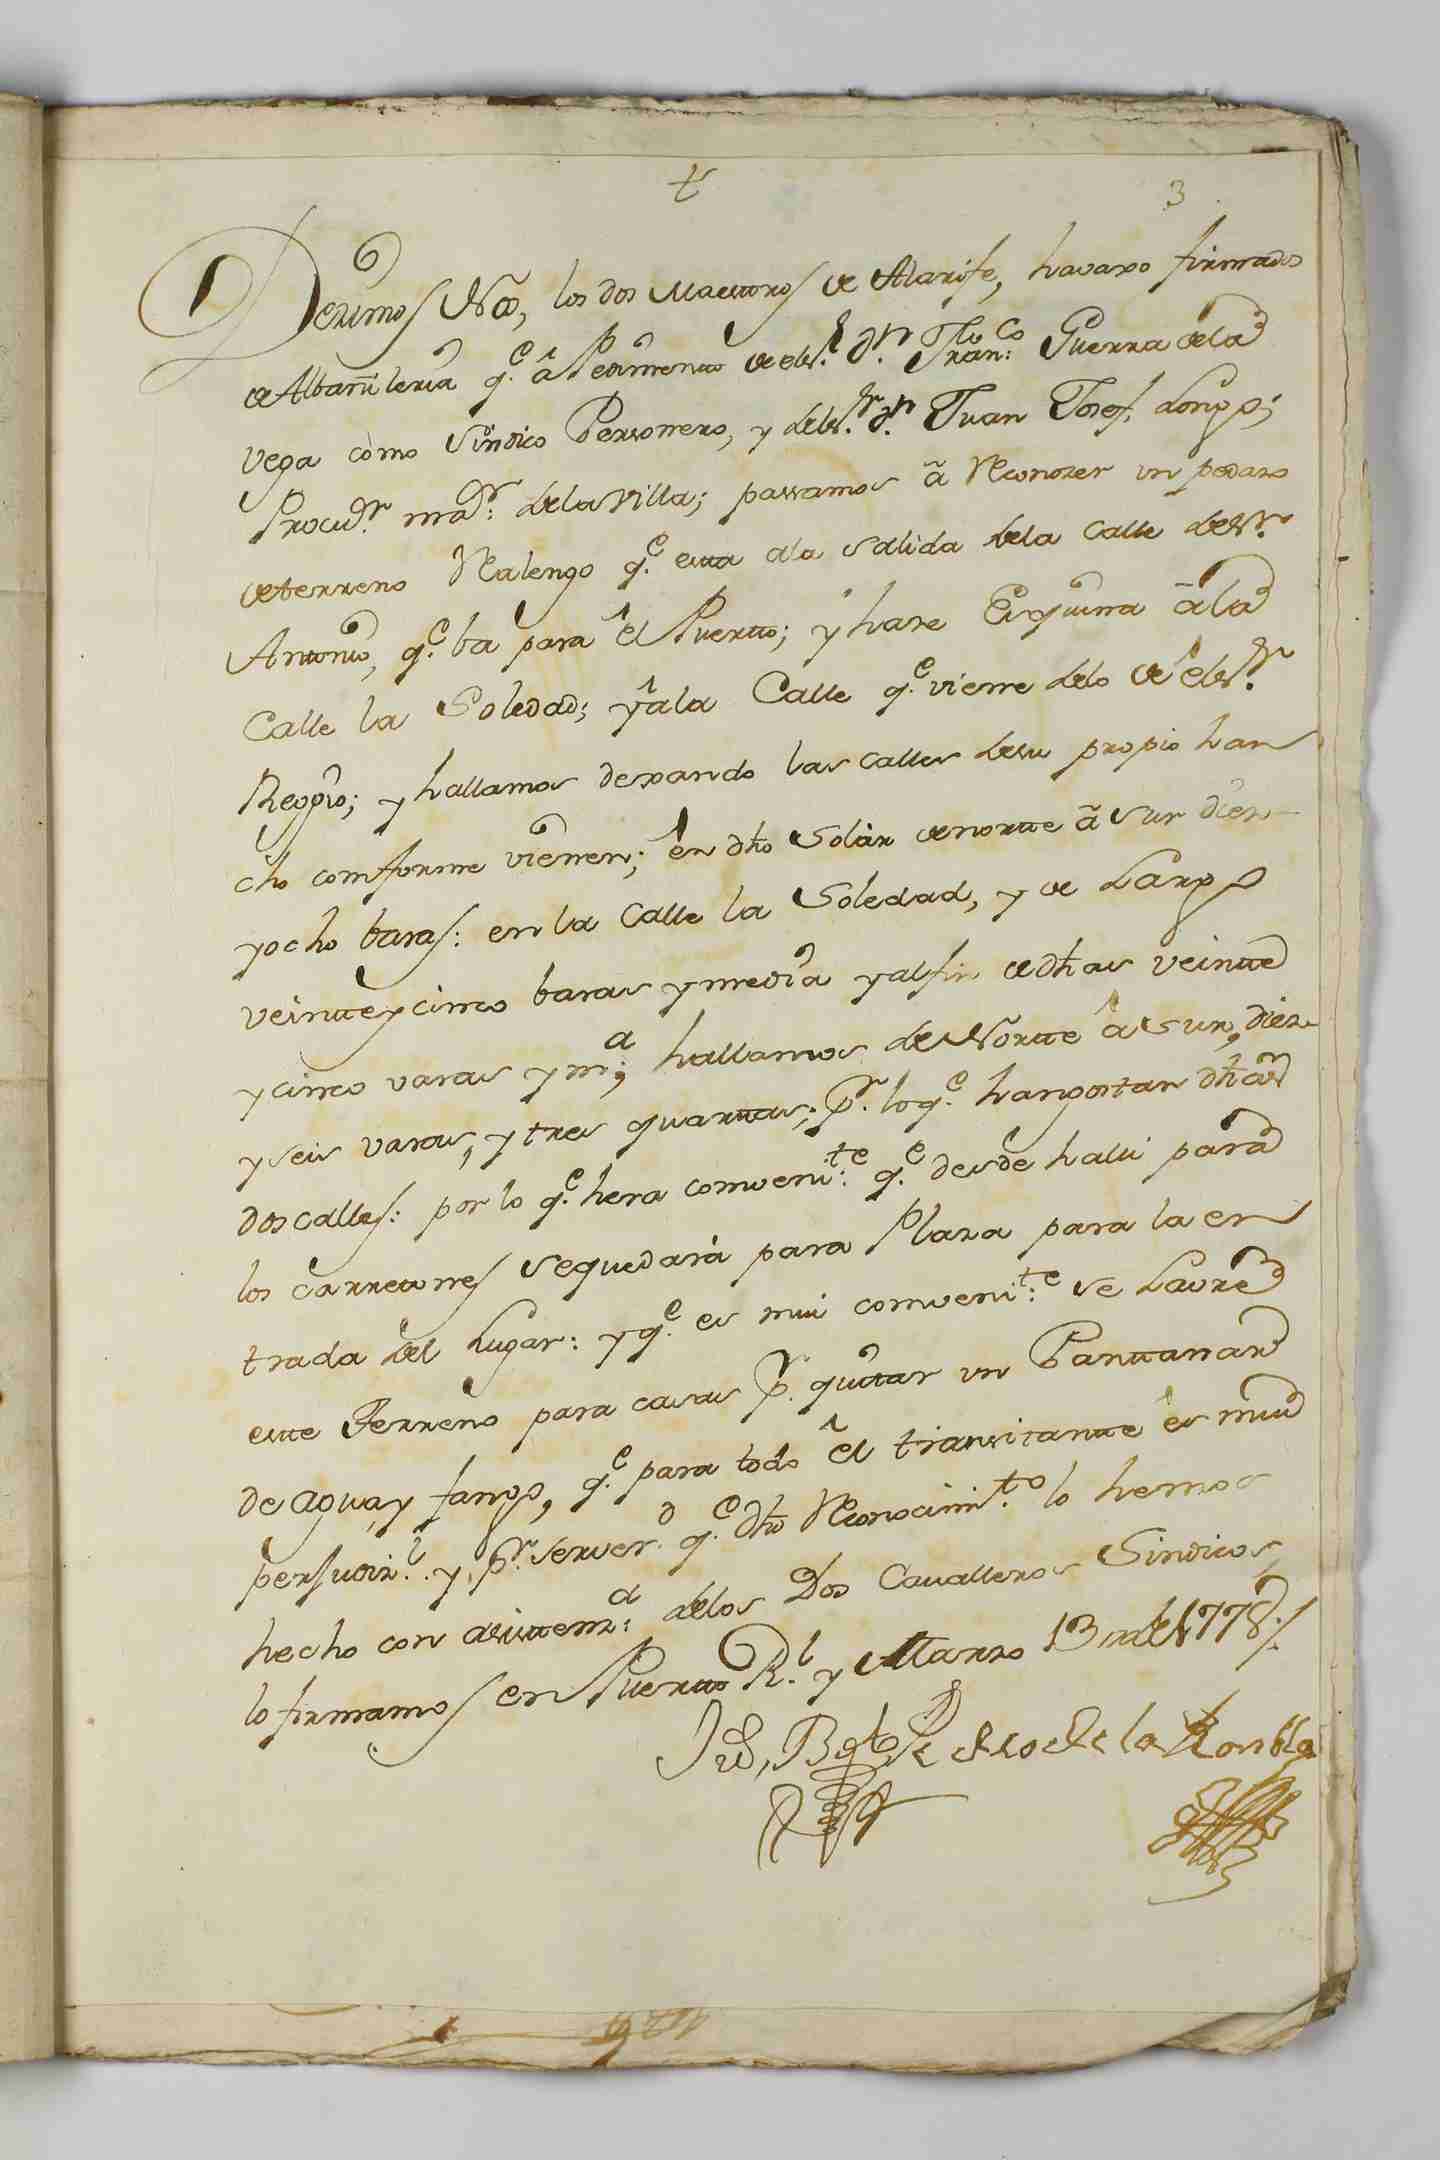 t
3
Dezimos Nos, los dos Maestros de Alarife, havaxo firmados
de Albañileria q.e â Pedimento de el S.r D.n Fran.co Guerra dela
vega cómo Sindico Personero, y del S.r D.n Juan Josef. Longo;
Procu.r ma.r dela Villa; passamos ã Reconozer un pedazo
de terreno Realengo q.e esta ala salida dela calle de S.n
Antonio, q.e ba para êl Puerto; y haze Esquina ã la
Calle la Soledad; yâla Calle q.e viene delo de êl S.r
Reggio; y hallamos dexando las calles desu propio han
cho comforme vienen; en dho Solàr de norte ã Sur diez
yocho baras: en la Calle la Soledad, y de Largo
veinteycinco baras ymedia yalfin de dhas veinte
ycinco varas ym.a; hallamos de Norte â Sur, diez
yseis varas, ytres quartas; p.r loq.e hanostan dhas
dos calles: por lo q.e hera conveni.te: q.e desde halli para
los carretones sequedarà para Plaza para la en
trada del Lugar: yq.e es mui conveni.te se Lavre
este Terreno para casas p.r quitar un Pantanar
de agua, y fango, q.e para todo êl transitante es mui
perjudiz.l y, p.r ser ver.d q.e dho Reconocim.to lo hemos
hecho con asistenz.a delos Dos Cavalleros Sindicos,
lo firmamos en Puerto R.l y Marzo 13 de 1778.
de la Ronbla